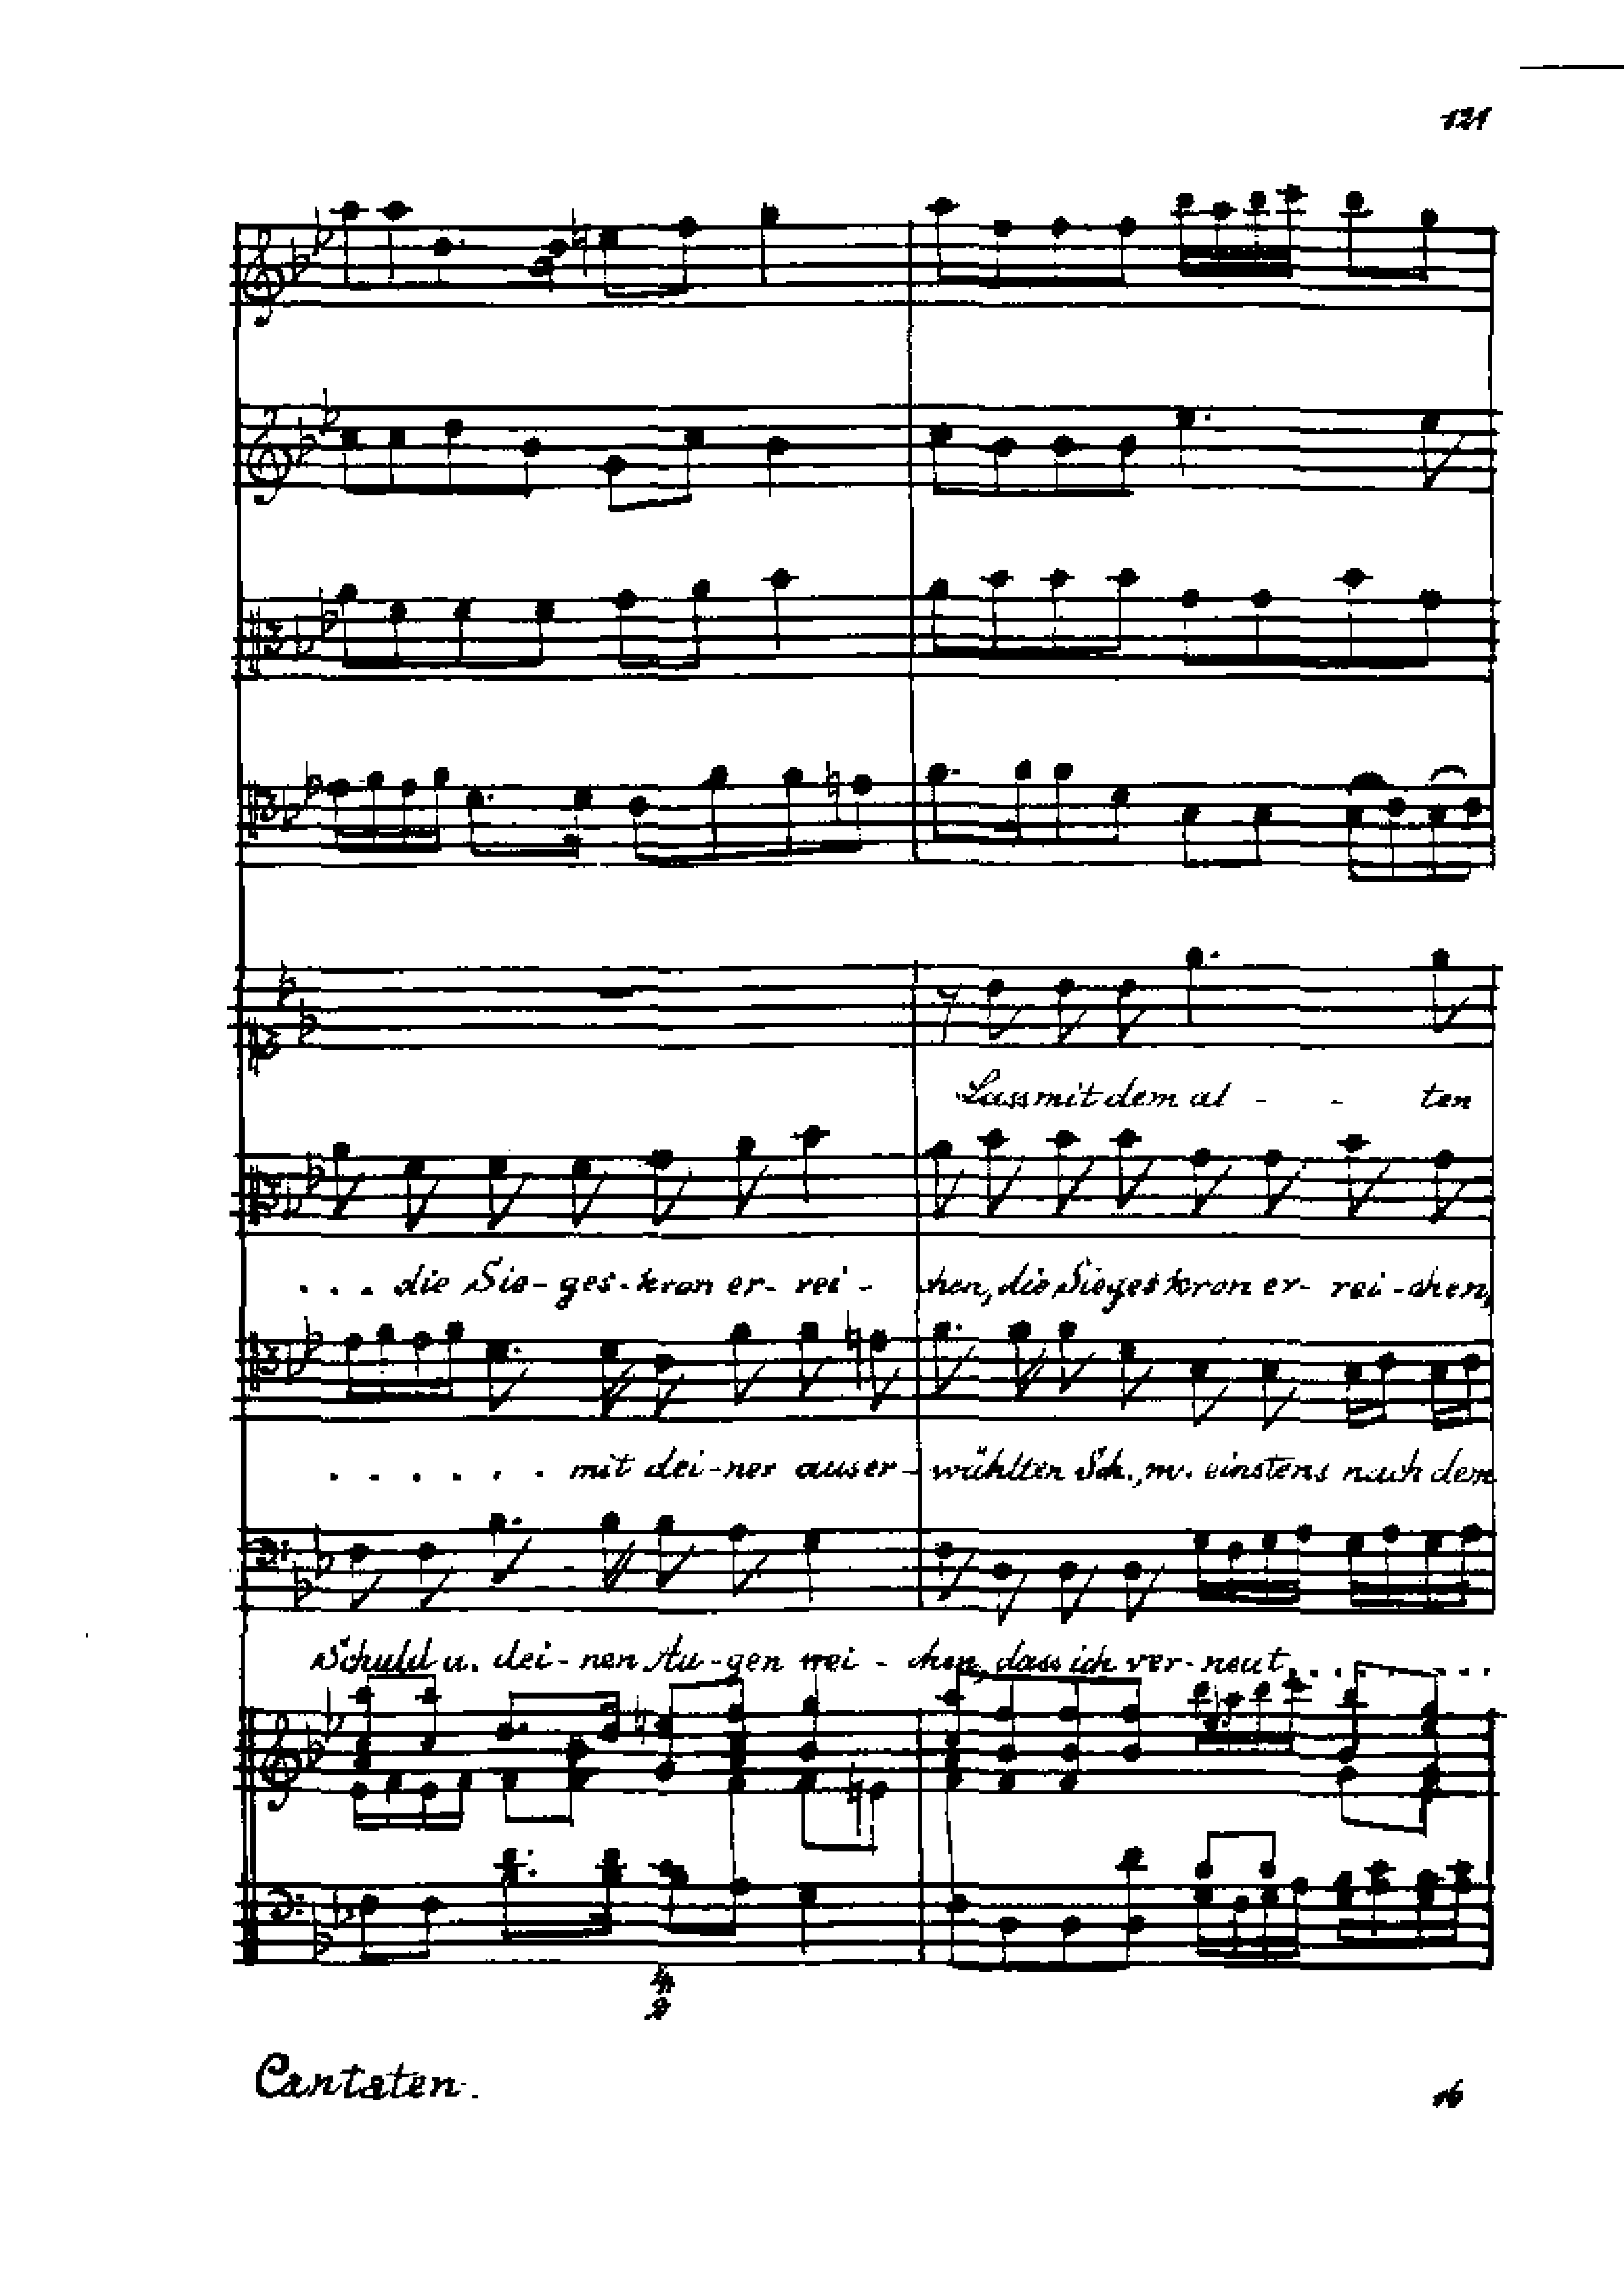 121
Lass mit dem al - - ten
. . . die Sie-ges-kron er-rei - chen, die Sieges kron er-rei-chen,
. . . . . . mit dei-ner auser-wählten Sch., m. einstens nach dem
Schuld u. dei-nen Au-gen wei - chen, dass ich ver-neut . . . . . . .
4
2
Cantaten.
16